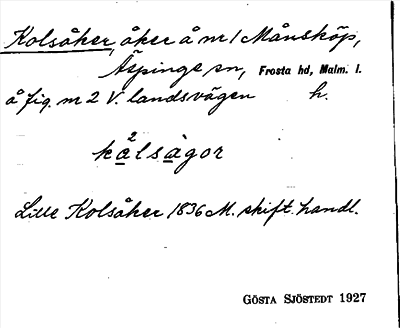 Kolsåker, åker å nr 1 Månsköp,
Äspinge sn, Frosta hd, Malm. l.
å fig. nr 2 V. landsvägen h.
kålsågor
Lille Kolsåker 1836 M. skift. handl.
GÖSTA SJÖSTEDT 1927